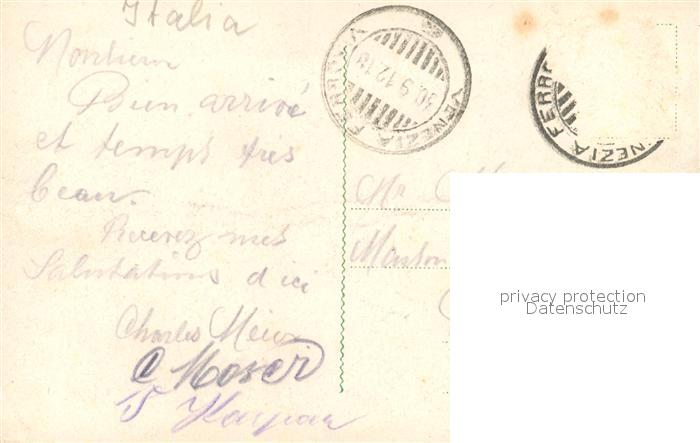 Italia
Monsieur
Bien arrivé
et temps très
beau.
Recevez mes
Salutations d'ici
Charles
C Moser
VENEZIA FERROVIA
30.9.12.18
VENEZIA FERRO
Mr
Maison
privacy protection
Datenschutz